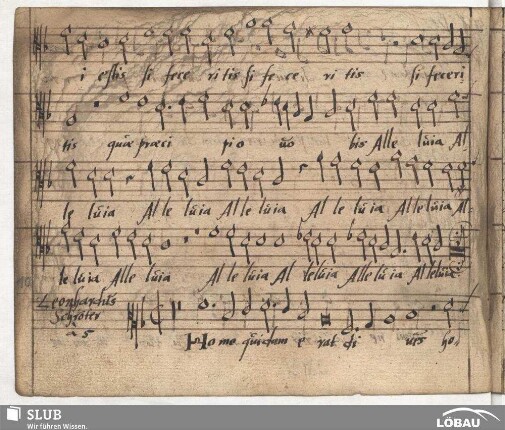 i estis si fece ri tis si fe ce ri tis si feceri
tis quæ præci pio vo bis Alle luia Al
le luia Al le luia Al le luia Al le luia Al le luia Al
le luia Alle luia Al le luia Al leluia Alle luia Alleluia
Leonhardus
Schröter
à 5
Homo quidam e rat di ves ho
SLUB
Wir führen Wissen.
LÖBAU